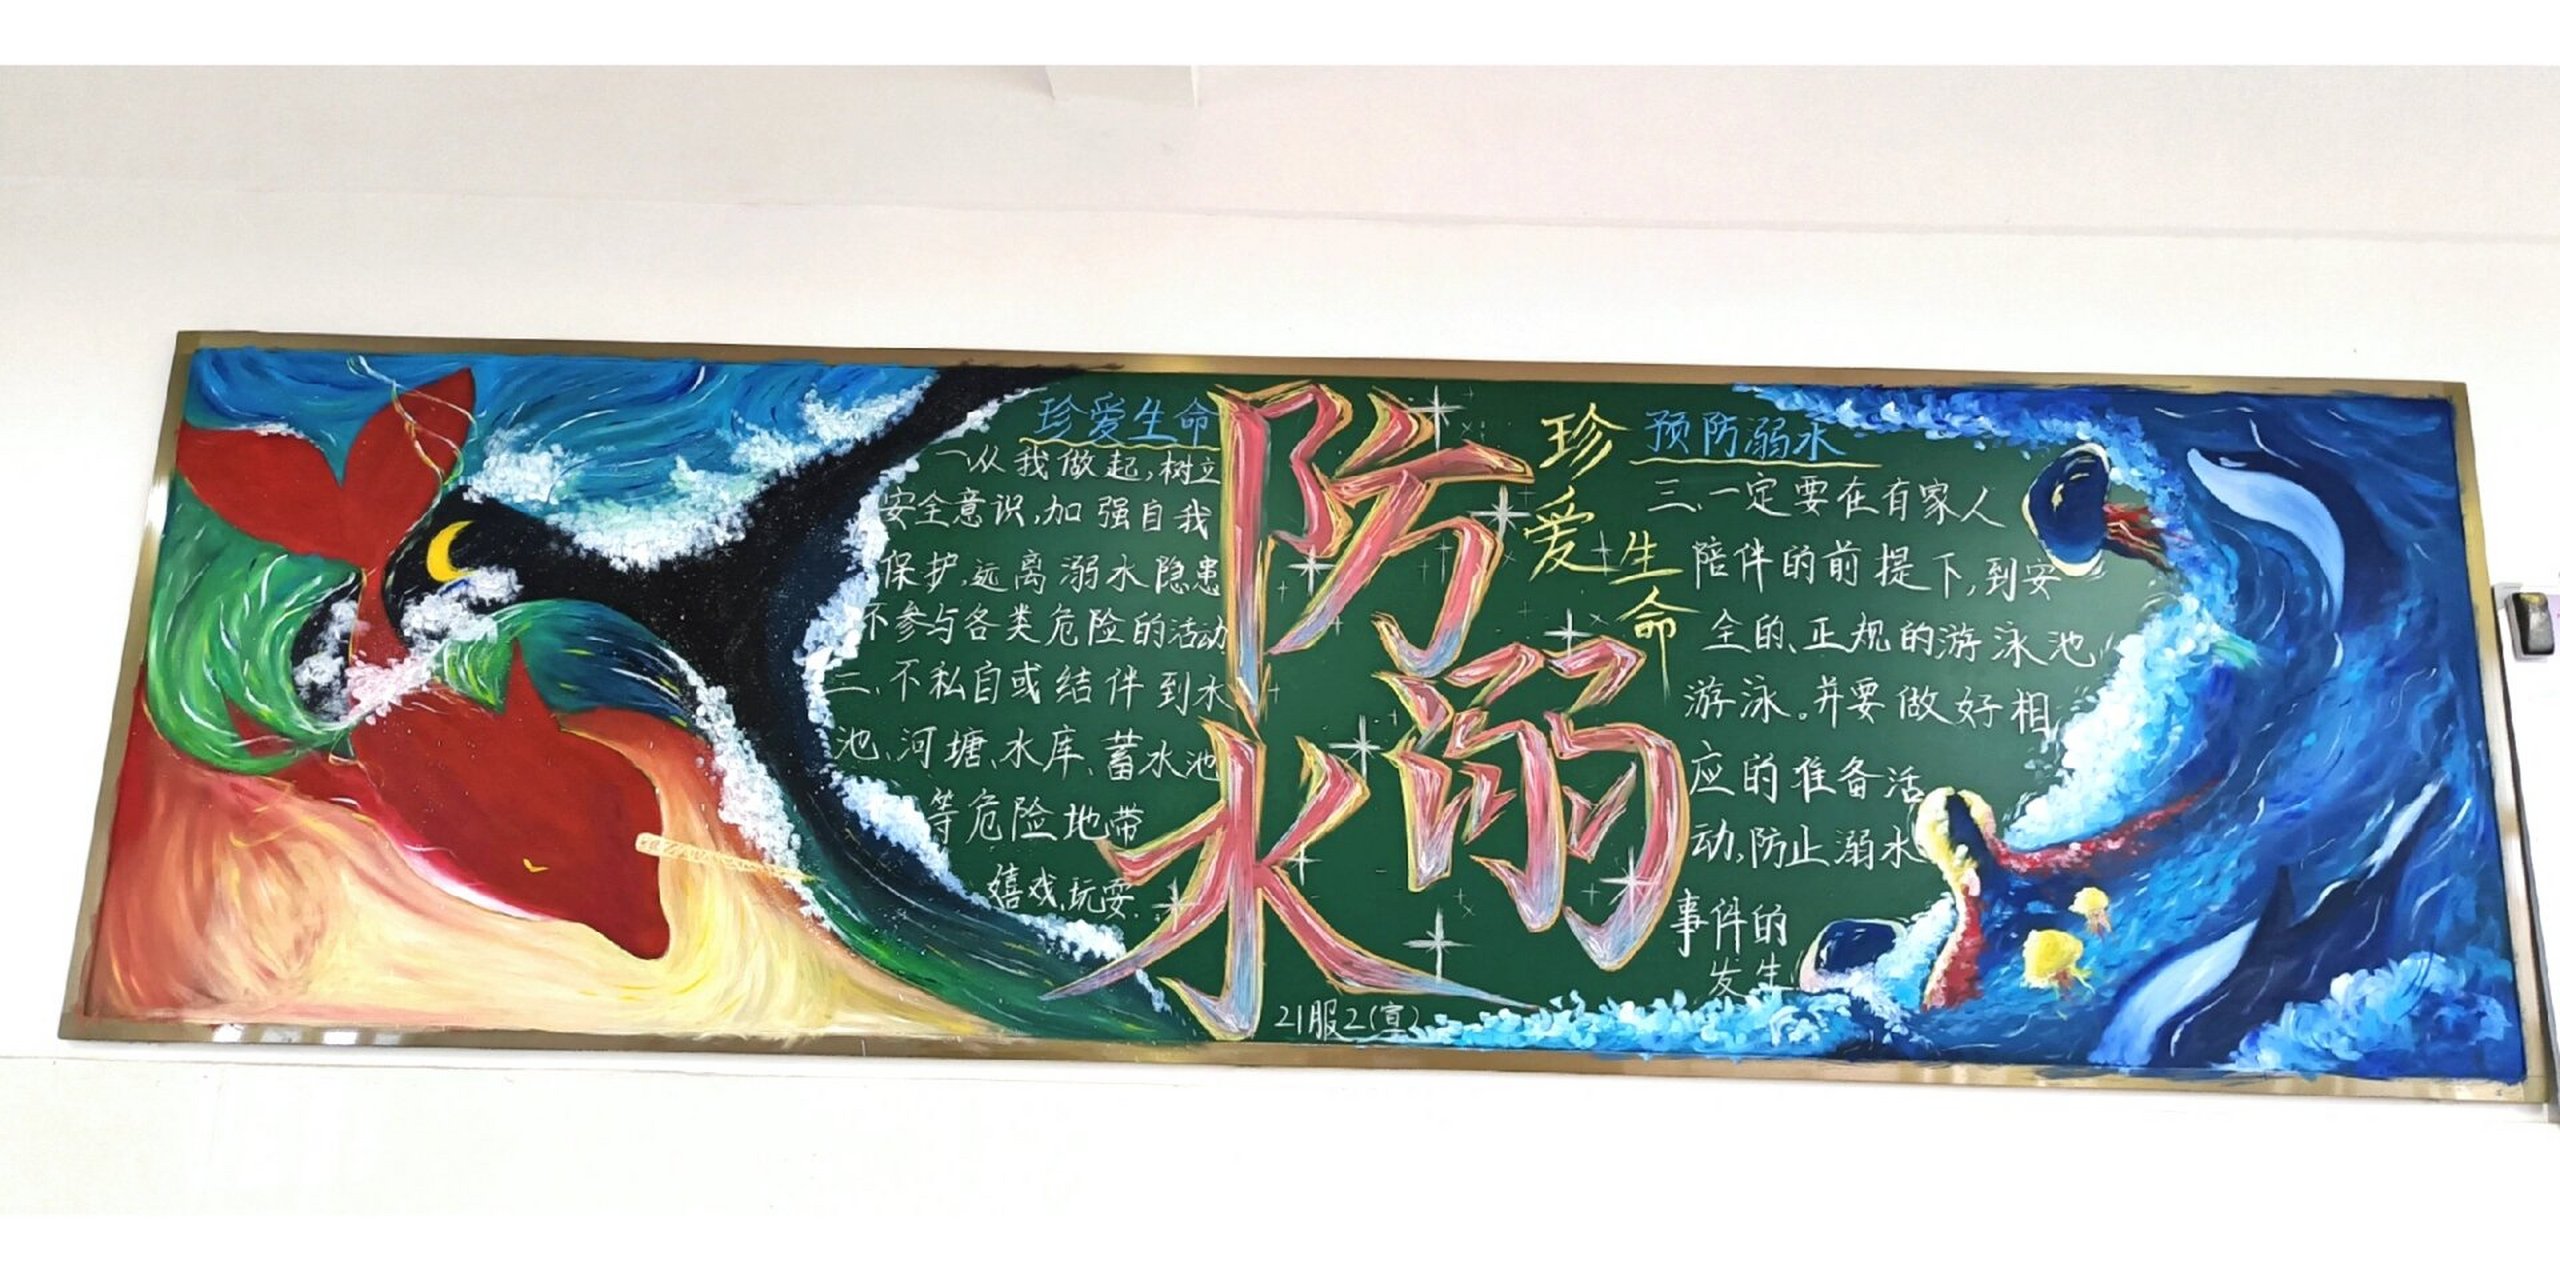 珍爱生命
一、从我做起,树立
安全意识,加强自我
保护,远离溺水隐患
不参与各类危险的活动
二、不私自或结伴到水
池、河塘、水库、蓄水池
等危险地带
嬉戏、玩耍.
防溺水
珍爱生命
预防溺水
三、一定要在有家人
陪伴的前提下,到安
全的、正规的游泳池
游泳。并要做好相
应的准备活
动,防止溺水
事件的
发生
21服2(宣)